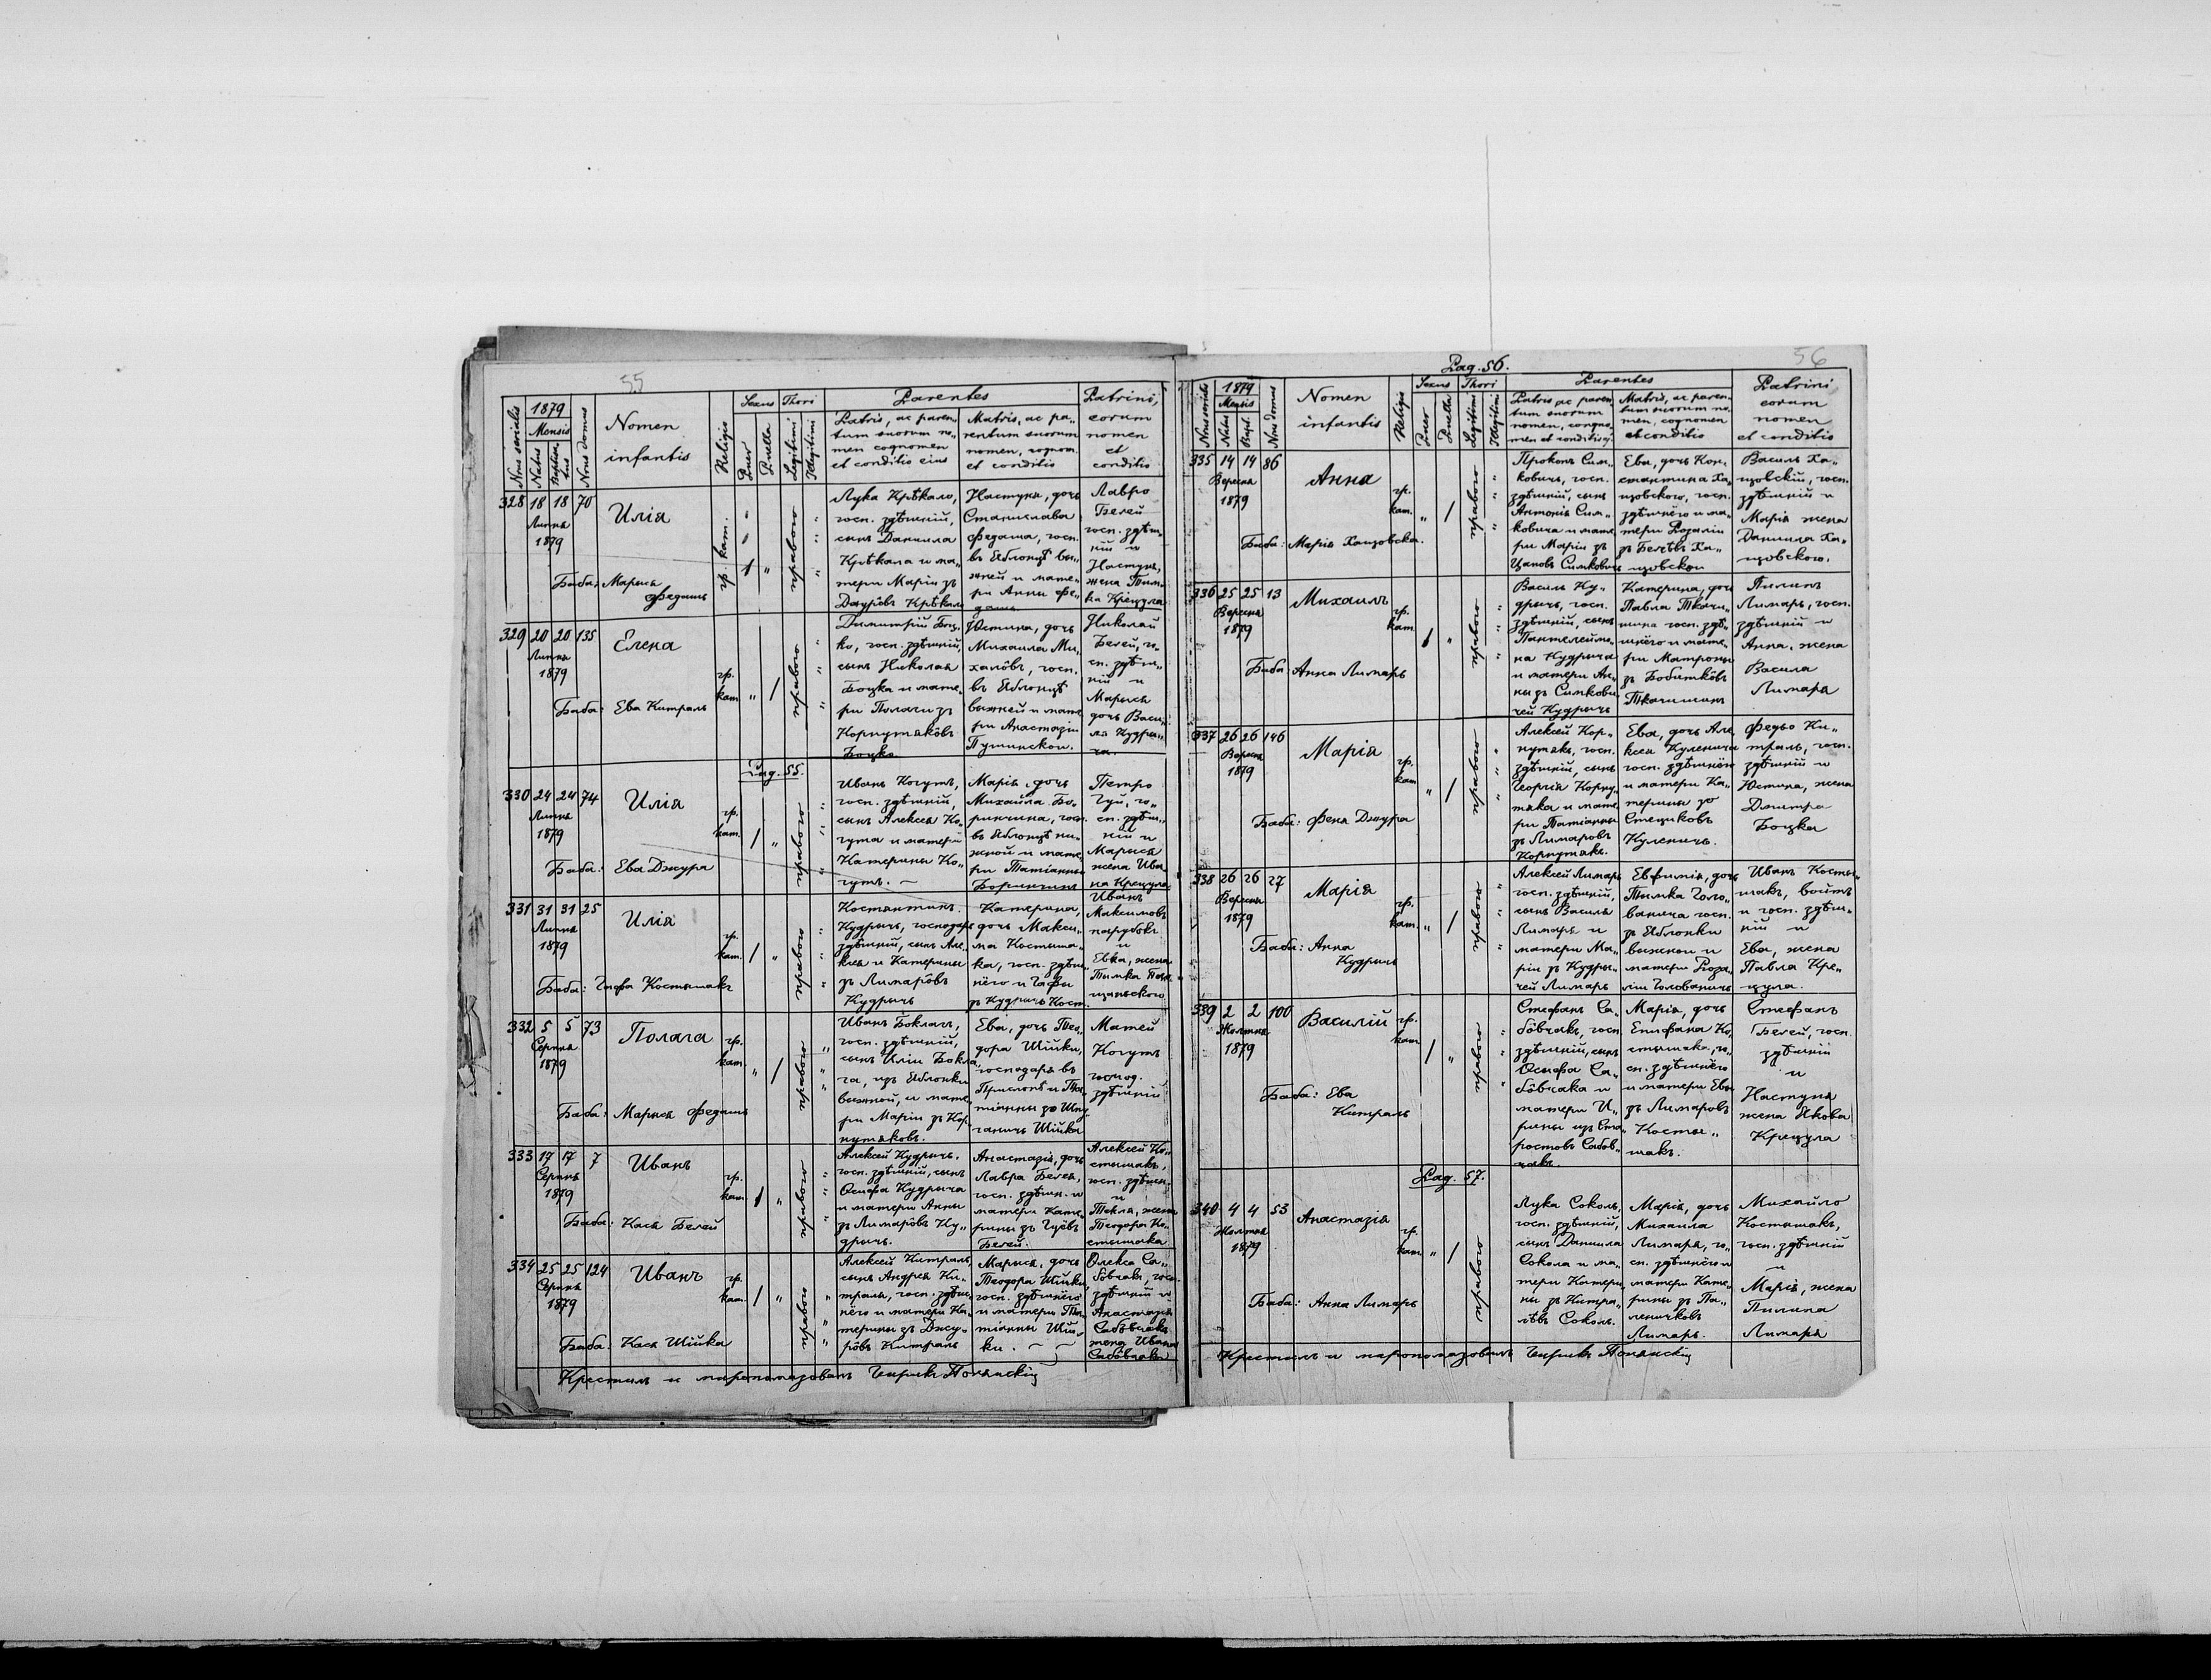 55
1879
Mensis
Nrus serialis
Natus
Baptisatus
Nrus domus
Nomen
infantis
Religio
Sexus
Puer
Puella
Thori
Legitimi
Illegitimi
Parentes
Patris, ac paren„
tum suorum no„
men cognomen
et conditio eius
Matris, ac pa„
rentum suorum
nomen, cognom.
et conditio
Patrini,
eorum
nomen
et
conditio
328 18 18 70
Липня
1879
Илія
Баба: Марыся
Федашъ
гр. кат.
правого
Лука Крѣкало,
госп. здѣшній,
сынъ Даниила
Крѣкала и ма„
тери Маріи зъ
Джурôвъ Крѣкало
Настуня, дочь
Станислава
Федаша, госп.
въ Яблонцѣ вы„
жней и мате„
ри Анны Фе„
дашъ
Лавро
Белей
госп. здѣш„
ній и
Настуня,
жена Тим„
ка Крецула
329 20 20 135
Липня
1879
Елена
Баба: Ева Китраль
гр.
кат.
правого
Димитрій Боц„
ко, госп. здѣшній,
сынъ Николая
Боцка и мате„
ри Полаги зъ
Корнутякôвъ
Боцко
Юстина, дочь
Михаила Ми„
халôвъ, госп.
въ Яблонцѣ
выжней и мате
ри Анастазіи
Николай
Белей, го„
сп. здѣш„
ній и
Марыся
дочь Васи„
ля Кудры„
ча.
Pag. 55.
330 24 24 74
Липня
1879
Илія
Баба: Ева Джура
гр.
кат.
правого
Иванъ Когутъ,
госп. здѣшній,
сынъ Алексея Ко„
гута и матери
Катерины Ко„
гутъ. ~
Марія, дочь
Михайла Бо„
ринчина, госп.
въ Яблонцѣ ни„
жной и мате„
ри Татіанны
Боринчинъ
Петро
Гуй, го„
сп. здѣш„
ній и
Марыся
жена Ива„
на Крецула
331 31 31 25
Липня
1879
Илія
Баба: Гафа Костишакъ
гр.
кат.
правого
Костантинъ
Кудричъ, господарь
здѣшній, сынъ Але„
ксея и Катерины
зъ Лимарôвъ
Кудричъ
Катерина,
дочь Макси„
ма Костиша„
ка, госп. здѣш„
нёго и Гафы
зъ Кудричъ Кост.
Иванъ
Максимовъ
парубокъ
и
Евка, жена
Тимка
332 5 5 73
Серпня
1879
Полага
Баба: Марыся Федашъ
гр.
кат.
правого
Иванъ Боклагъ,
госп. здѣшній,
сынъ Иліи Бокла„
га, изъ Яблонки
выжной, и мате„
ри Маріи зъ Кор„
нутяковъ.
Ева, дочь Тео„
дора Шійки,
господаря въ
Прислопѣ и Та„
тіанны
Шійка
Матей
Когутъ
господ.
здѣшній
333 17 17 7
Серпня
1879
Иванъ
Баба: Кася Белей
гр.
кат.
правого
Алексей Кудричъ,
госп. здѣшній, сынъ
Осифа Кудрича
и матери Анны
зъ Лимарôвъ Ку„
дричъ.
Анастазія, дочь
Лавра Белея,
госп. здѣшн. и
матери Кате„
рины зъ Гуёвъ
Белей.
Алексей Ко„
стишакъ,
госп. здѣшн.
и
Текля, жена
Теодора Ко„
стишака
334 25 25 124
Серпня
1879
Иванъ
Баба: Кася Шійка
гр.
кат.
правого
Алексей Китраль,
сынъ Андрея Ки„
траля, госп. здѣш„
нёго и матери Ка„
терины зъ Джу„
рôвъ Китраль
Марыся, дочь
Теодора Шійки
госп. здѣшнёго
и матери Та„
тіанны Ший„
ки. ~ ~
Олекса Са„
бôвчакъ, госп.
здѣшній и
Анастазія
Сабôвчакъ
жена Ивана
Сабôвчака
Крестилъ и миропомазовалъ Чирякъ Полянскій
Pag. 56.
56
1879
Mensis
Nrus serialis
Natus
Bapt.
Nrus domus
Nomen
infantis
Religio
Sexus
Puer
Puella
Thori
Legitimi
Illegitimi
Parentes
Patris ac paren„
tum suorum
nomen, cogno„
men et conditio
Matris, ac paren„
tum suorum no„
men, cognomen
et conditio
Patrini
eorum
nomen
et conditio
335 14 14 86
Вересня
1879
Анна
Баба: Марія Ханцовска.
гр.
кат.
правого
Прокопъ Сим„
ковичъ, госп.
здѣшній, сынъ
Антонія Сим„
ковича и мате
ри Маріи зъ
Цановъ Симковичъ
Ева, дочь Кон„
стантина Ха„
нцовского, госп.
здѣшнёго и ма„
тери Розаліи
зъ Белѣвъ Ха„
нцовскои
Василь Ха„
нцовскій, госп.
здѣшній и
Марія жена
Даниила Ха„
нцовского.
336 25 25 13
Вересня
1879
Михаилъ
Баба: Анна Лимаръ
гр.
кат.
правого
Василь Ку„
дричъ, госп.
здѣшній, сынъ
Пантелеймо„
на Кудрича
и матери Ан„
ны зъ Симкови„
чей Кудричъ
Катерина, дочь
Павла Ткачи„
шина госп. здѣ„
шнёго и мате„
ри Матроны
зъ Бобиткôвъ
Ткачишинъ
Пилипъ
Лимаръ, госп.
здѣшній и
Анна, жена
Василя
Лимаря
337 26 26 146
Вересня
1879
Марія
Баба: Феня Джура
гр.
кат.
правого
Алексей Кор„
нутякъ, госп.
здѣшній, сынъ
Георгія Корну„
тяка и мате
ри Татіанны
зъ Лимаровъ
Корнутякъ.
Ева, дочь Але
ксея Кулемича
госп. здѣшнёго
и матери Ка„
терины зо
Стецикôвъ
Кулемичъ.
Федьо Ки„
траль, госп.
здѣшній и
Юстина, жена
Дмитра
Боцка
338 26 26 27
Вересня
1879
Марія
Баба: Анна
Кудричъ
гр.
кат.
правого
Алексей Лимаръ
госп. здѣшній,
сынъ Василя
Лимаря и
матери Ма„
ріи зъ Кудры„
чей Лимаръ
Евфимія, дочь
Тымка Голо„
ванича госп.
зъ Яблонки
выжнои и
матери Роза„
ліи Голованичъ
Иванъ Косты„
шакъ, войтъ
и госп. здѣш„
ній и
Ева, жена
Павла Кре„
цула.
339 2 2 100
Жолтня
1879
Василій
Баба: Ева
Китраль
гр.
кат.
правого
Стефанъ Са„
бôвчакъ, госп.
здѣшній, сынъ
Осифа Са„
бôвчака и
матери И„
рины изъ Ста„
ростовъ Сабôв„
чакъ.
Марія, дочь
Епифана Ко„
стышака, го„
сп. здѣшнёго
и матери Евы
зъ Лимаровъ
Косты„
шакъ.
Стефанъ
Белей, госп.
здѣшній
и
Настуня
жена Якова
Крецула
Pag. 57.
340 4 4 53
Жолтня
1879
Анастазія
Баба: Анна Лимаръ
гр.
кат.
правого
Лука Соколъ,
госп. здѣшній,
сынъ Даниила
Сокола и ма„
тери Катери„
ны зъ Китра„
лѣвъ Соколъ.
Марія, дочь
Михаила
Лимаря, го„
сп. здѣшнёго и
матери Кате„
рины зъ Па„
леничковъ
Лимаръ.
Михайло
Костишакъ,
госп. здѣшній
и
Марія, жена
Пилипа
Лимаря
Крестилъ и миропомазовалъ Чирякъ Полянскій